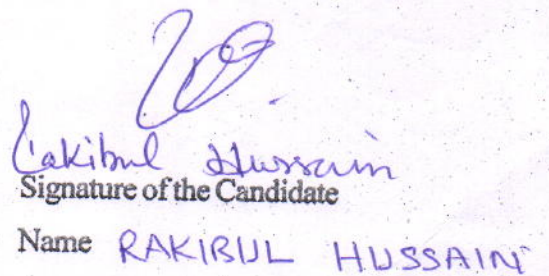 Rakibul Hussain
Signature of the Candidate
Name RAKIBUL HUSSAIN